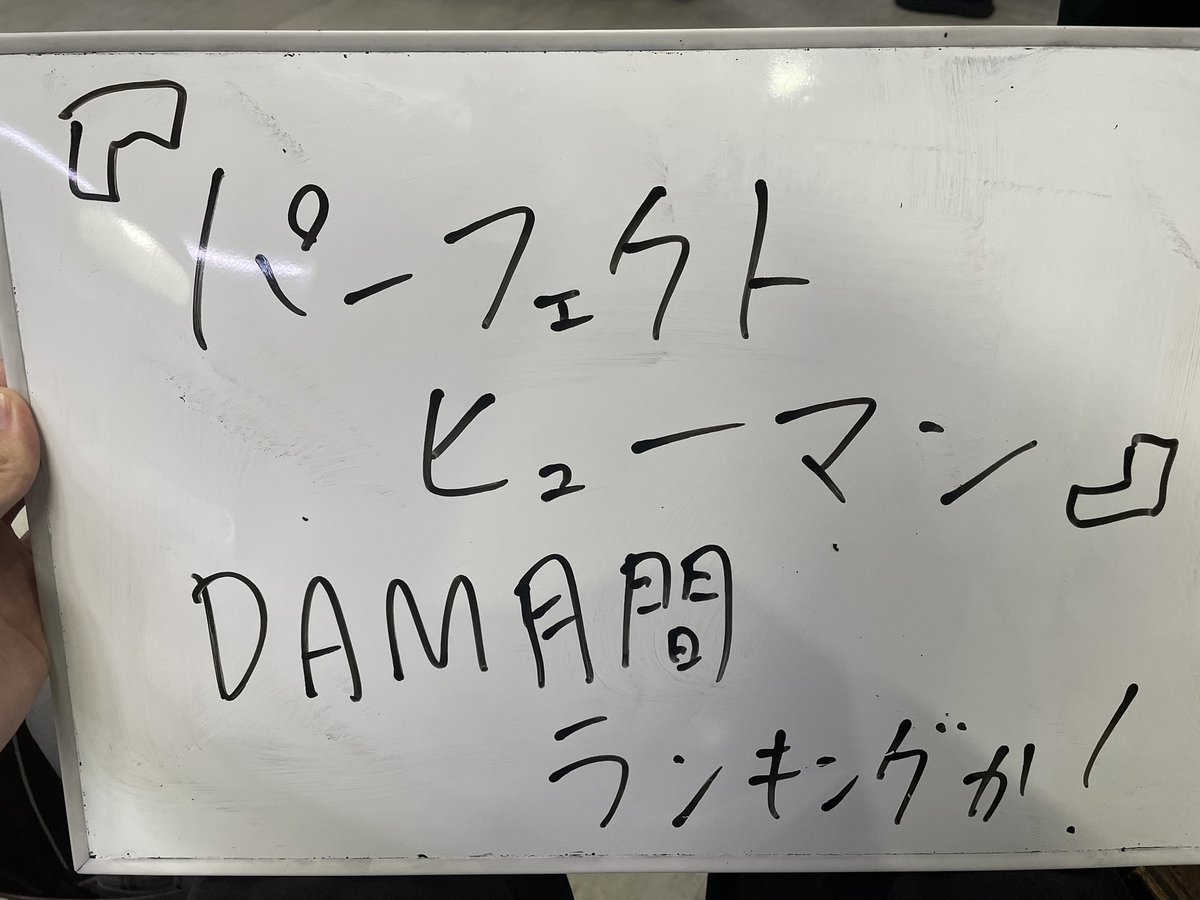 『パーフェクト
ヒューマン』
DAM月間
ランキングか!